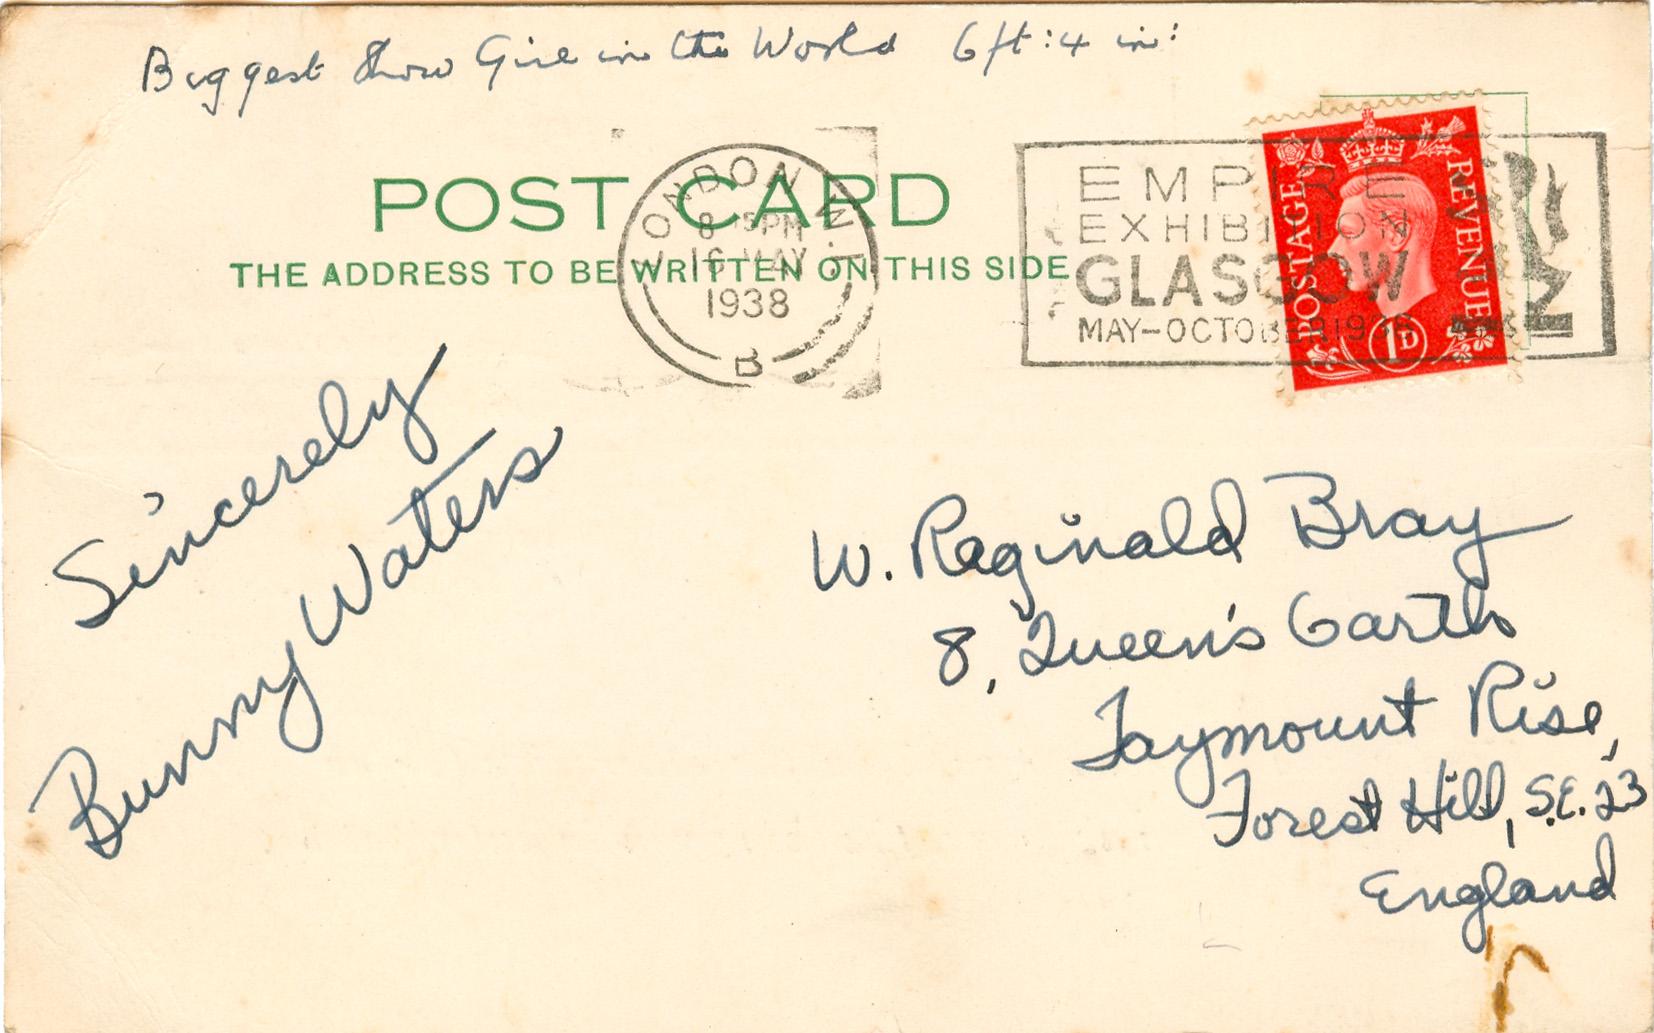 Biggest Show Girl in the World 6ft:4 in:
POST CARD
THE ADDRESS TO BE WRITTEN ON THIS SIDE
LONDON W.1
8 15PM
16 MAY
1938
B
EMPIRE
EXHIBITION
GLASGOW
MAY-OCTOBER 1938
POSTAGE
REVENUE
1D
Sincerely
Bunny Waters
W. Reginald Bray
8, Queen's Garth
Taymount Rise,
Forest Hill, S.E. 23
England